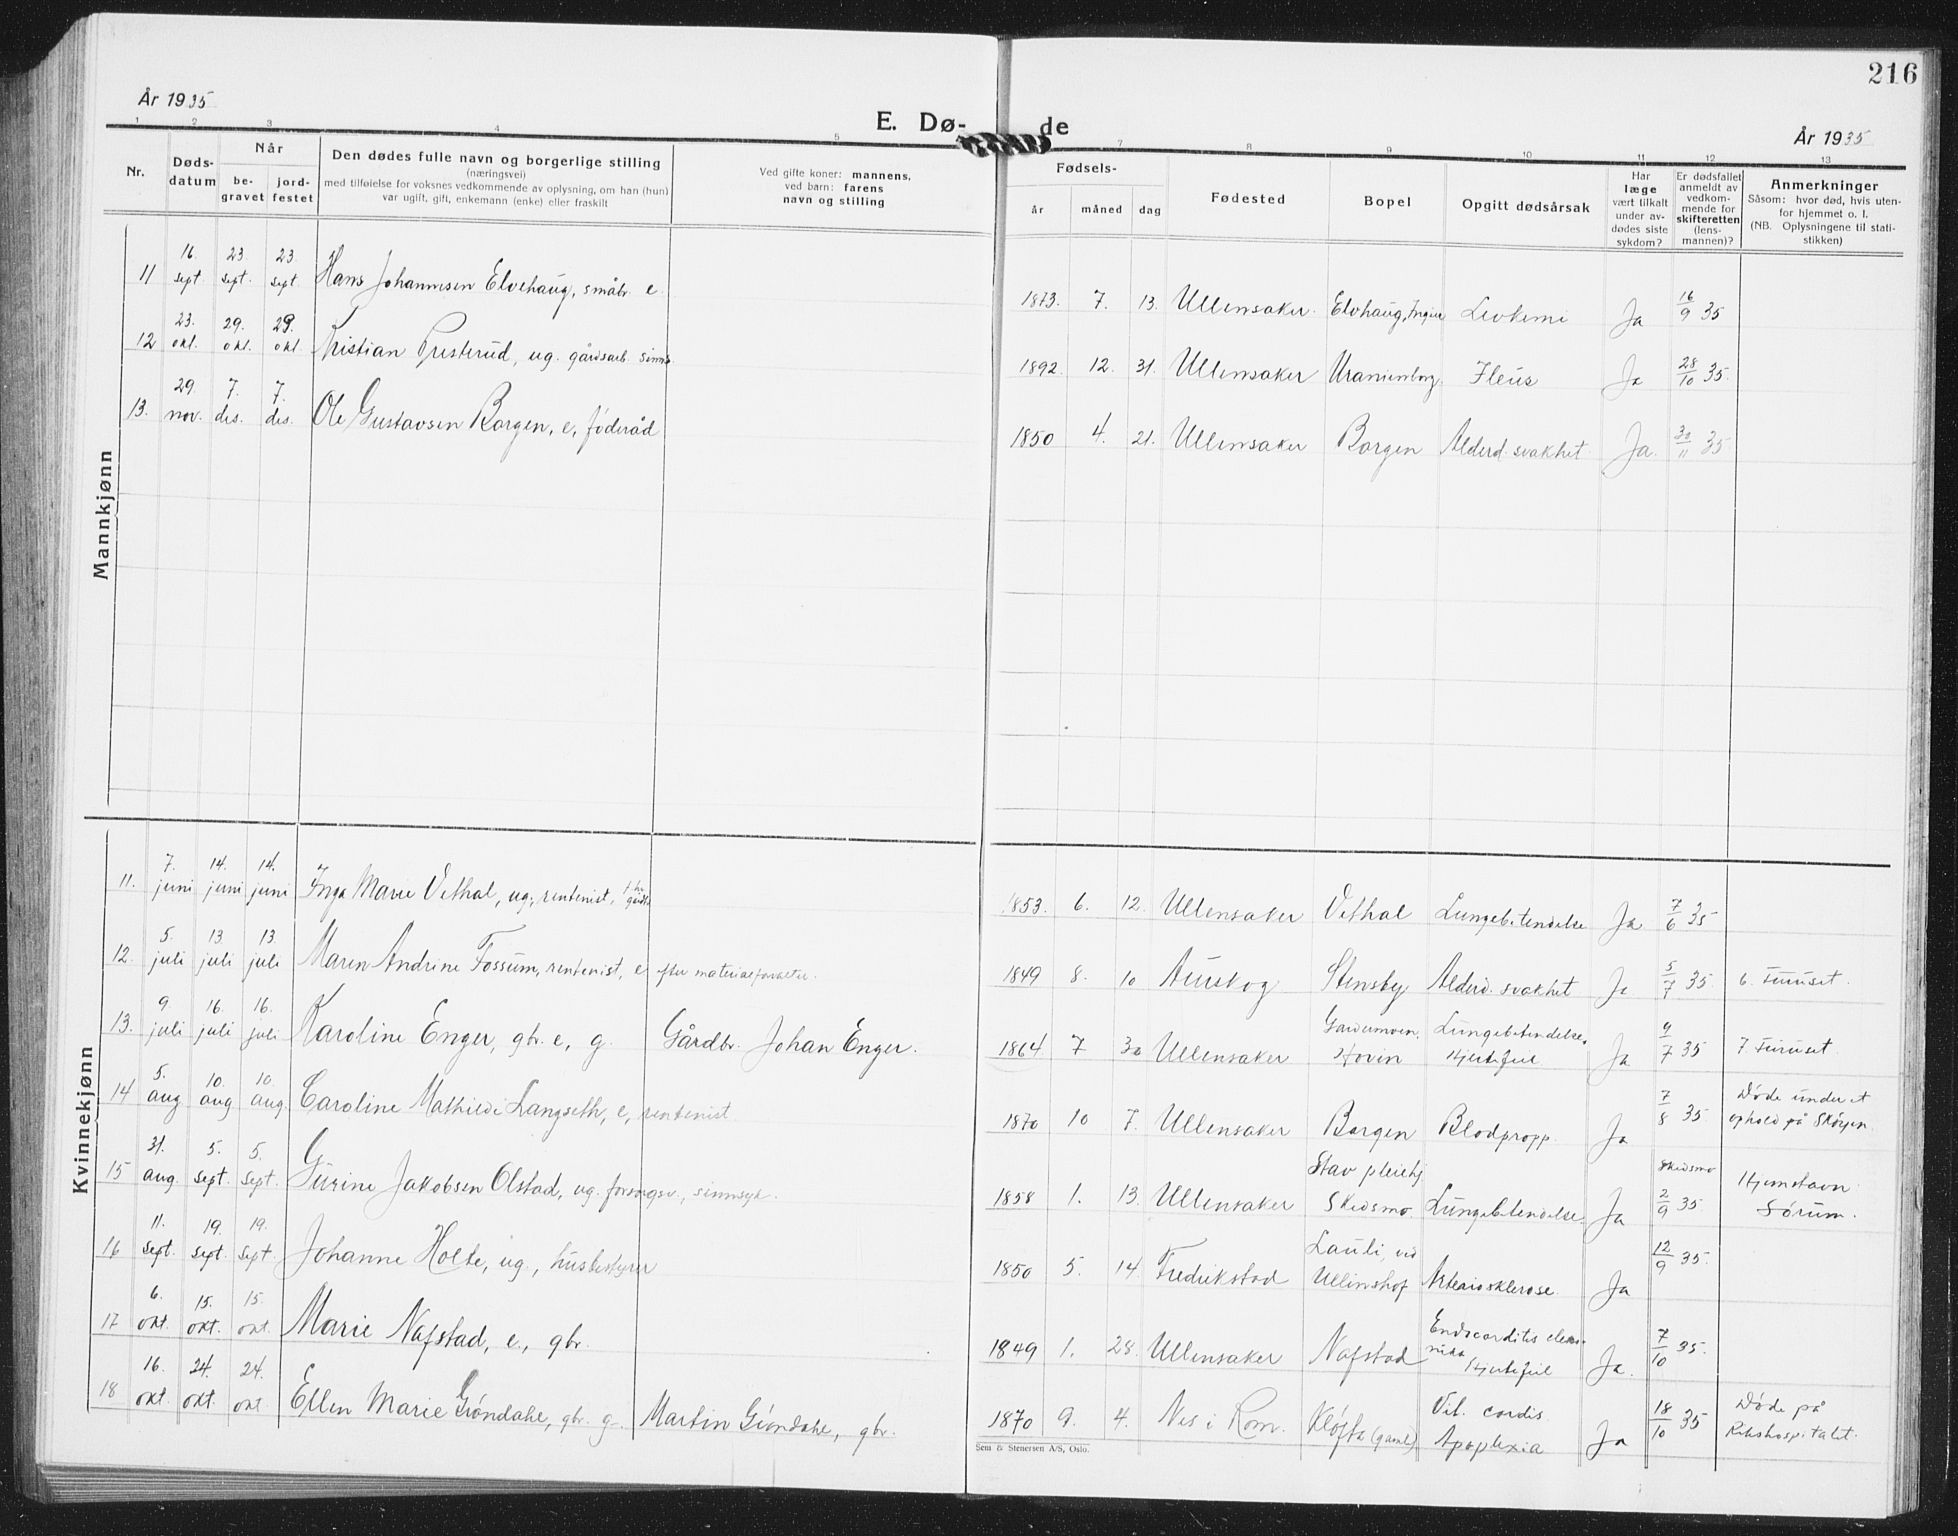 216
År 1935
E. Dø- de
År 1935
1 2 3 4 5 7 8 9 10 11 12 13
Nr.
Døds-
datum
Når
be-
gravet
jord-
festet
Den dødes fulle navn og borgerlige stilling
(næringsvei)
med tilføielse for voksnes vedkommende av oplysning, om han (hun)
var ugift, gift, enkemann (enke) eller fraskilt
Ved gifte koner: mannens,
ved barn: farens
navn og stilling
Fødsels-
år måned dag
Fødested
Bopel
Opgitt dødsårsak
Har
læge
vært tilkalt
under av-
dødes siste
sykdom?
Er dødsfallet
anmeldt av
vedkom-
mende for
skifteretten
(lens-
mannen)?
Anmerkninger
Såsom: hvor død, hvis uten-
for hjemmet o. l.
(NB. Oplysningene til stati-
stikken)
Mannkjønn
11 16. sept. 23. sept. 23. sept. Hans Johannesen Elvehaug, småbr. e. 1873. 7. 13. Ullensaker. Elvhaug, Levkemi Ja 16/9 35
12 23. okt. 29. okt. 29. okt. Kristian Presterud, ug. gårdsarb. sinns. 1892. 12. 31. Ullensaker Uranienborg. Ileus Ja 28/10 35.
13. 29 nov. 7. des. 7. des. Ole Gustavsen Borgen, e, føderåd 1850 4. 21. Ullensaker Borgen Alderd. svakhet Ja. 30/11 35
Kvinnekjønn
11. 7. juni 14. juni 14. juni Inga Marie Vethal, ug., rentenist, 1853. 6. 12. Ullensaker Vethal Lungebetendelse Ja 7/6 35
12. 5. juli 13. juli 13. juli Maren Andrine Fossum, rentenist, e efter materialforvalter. 1849 8. 10 Aurskog Stensby Alderd. svakhet Ja 5/7 35. 6. Furuset.
13. 9 juli 16. juli 16. juli Karoline Enger, gbr. e, g. Gårdbr. Johan Enger. 1864 7 30 Ullensaker Gardermoen. Hovin Lungebetendelse. Hjertefeil Ja 9/7 35 7. Furuset.
14 5. aug 10. aug 10. aug. Caroline Mathilde Langseth, e, rentenist 1870 10 7. Ullensaker Borgen Blodpropp. Ja 7/8 35 Døde under et ophold på Skøyen.
15 31. aug. 5. sept. 5. sept. Gurine Jakobsen Olstad, ug. forsørgsv., sinnsyk. 1858 1. 13. Ullensaker Stav pleiehj. Skedsmo. Lungebetendelse. Ja Skedsmo 2/9 35 Hjemstavn Sørum.
16 11. sept. 19. sept. 19. sept. Johanne Holte, ug., husbestyrer 1850 5. 14. Fredrikstad Lauli, ved Ullinshof Arteriosklerose. Ja 12/9 35.
17 6. okt. 15. okt. 15. okt. Marie Nafstad, e., gbr. 1849 1. 28. Ullensaker Nafstad Endocarditis Hjertefeil Ja. 7/10 35.
18 16. okt. 24. okt. 24. okt. Ellen Marie Grøndahl, gbr. g. Martin Grøndahl, gbr. 1870 9. 4. Nes i Rom. Kløfta (gaml.) Vit. cordis. Apoplexia Ja 18/10 35 Døde på Rikshospitalet.
Sem & Stenersen A/S, Oslo.